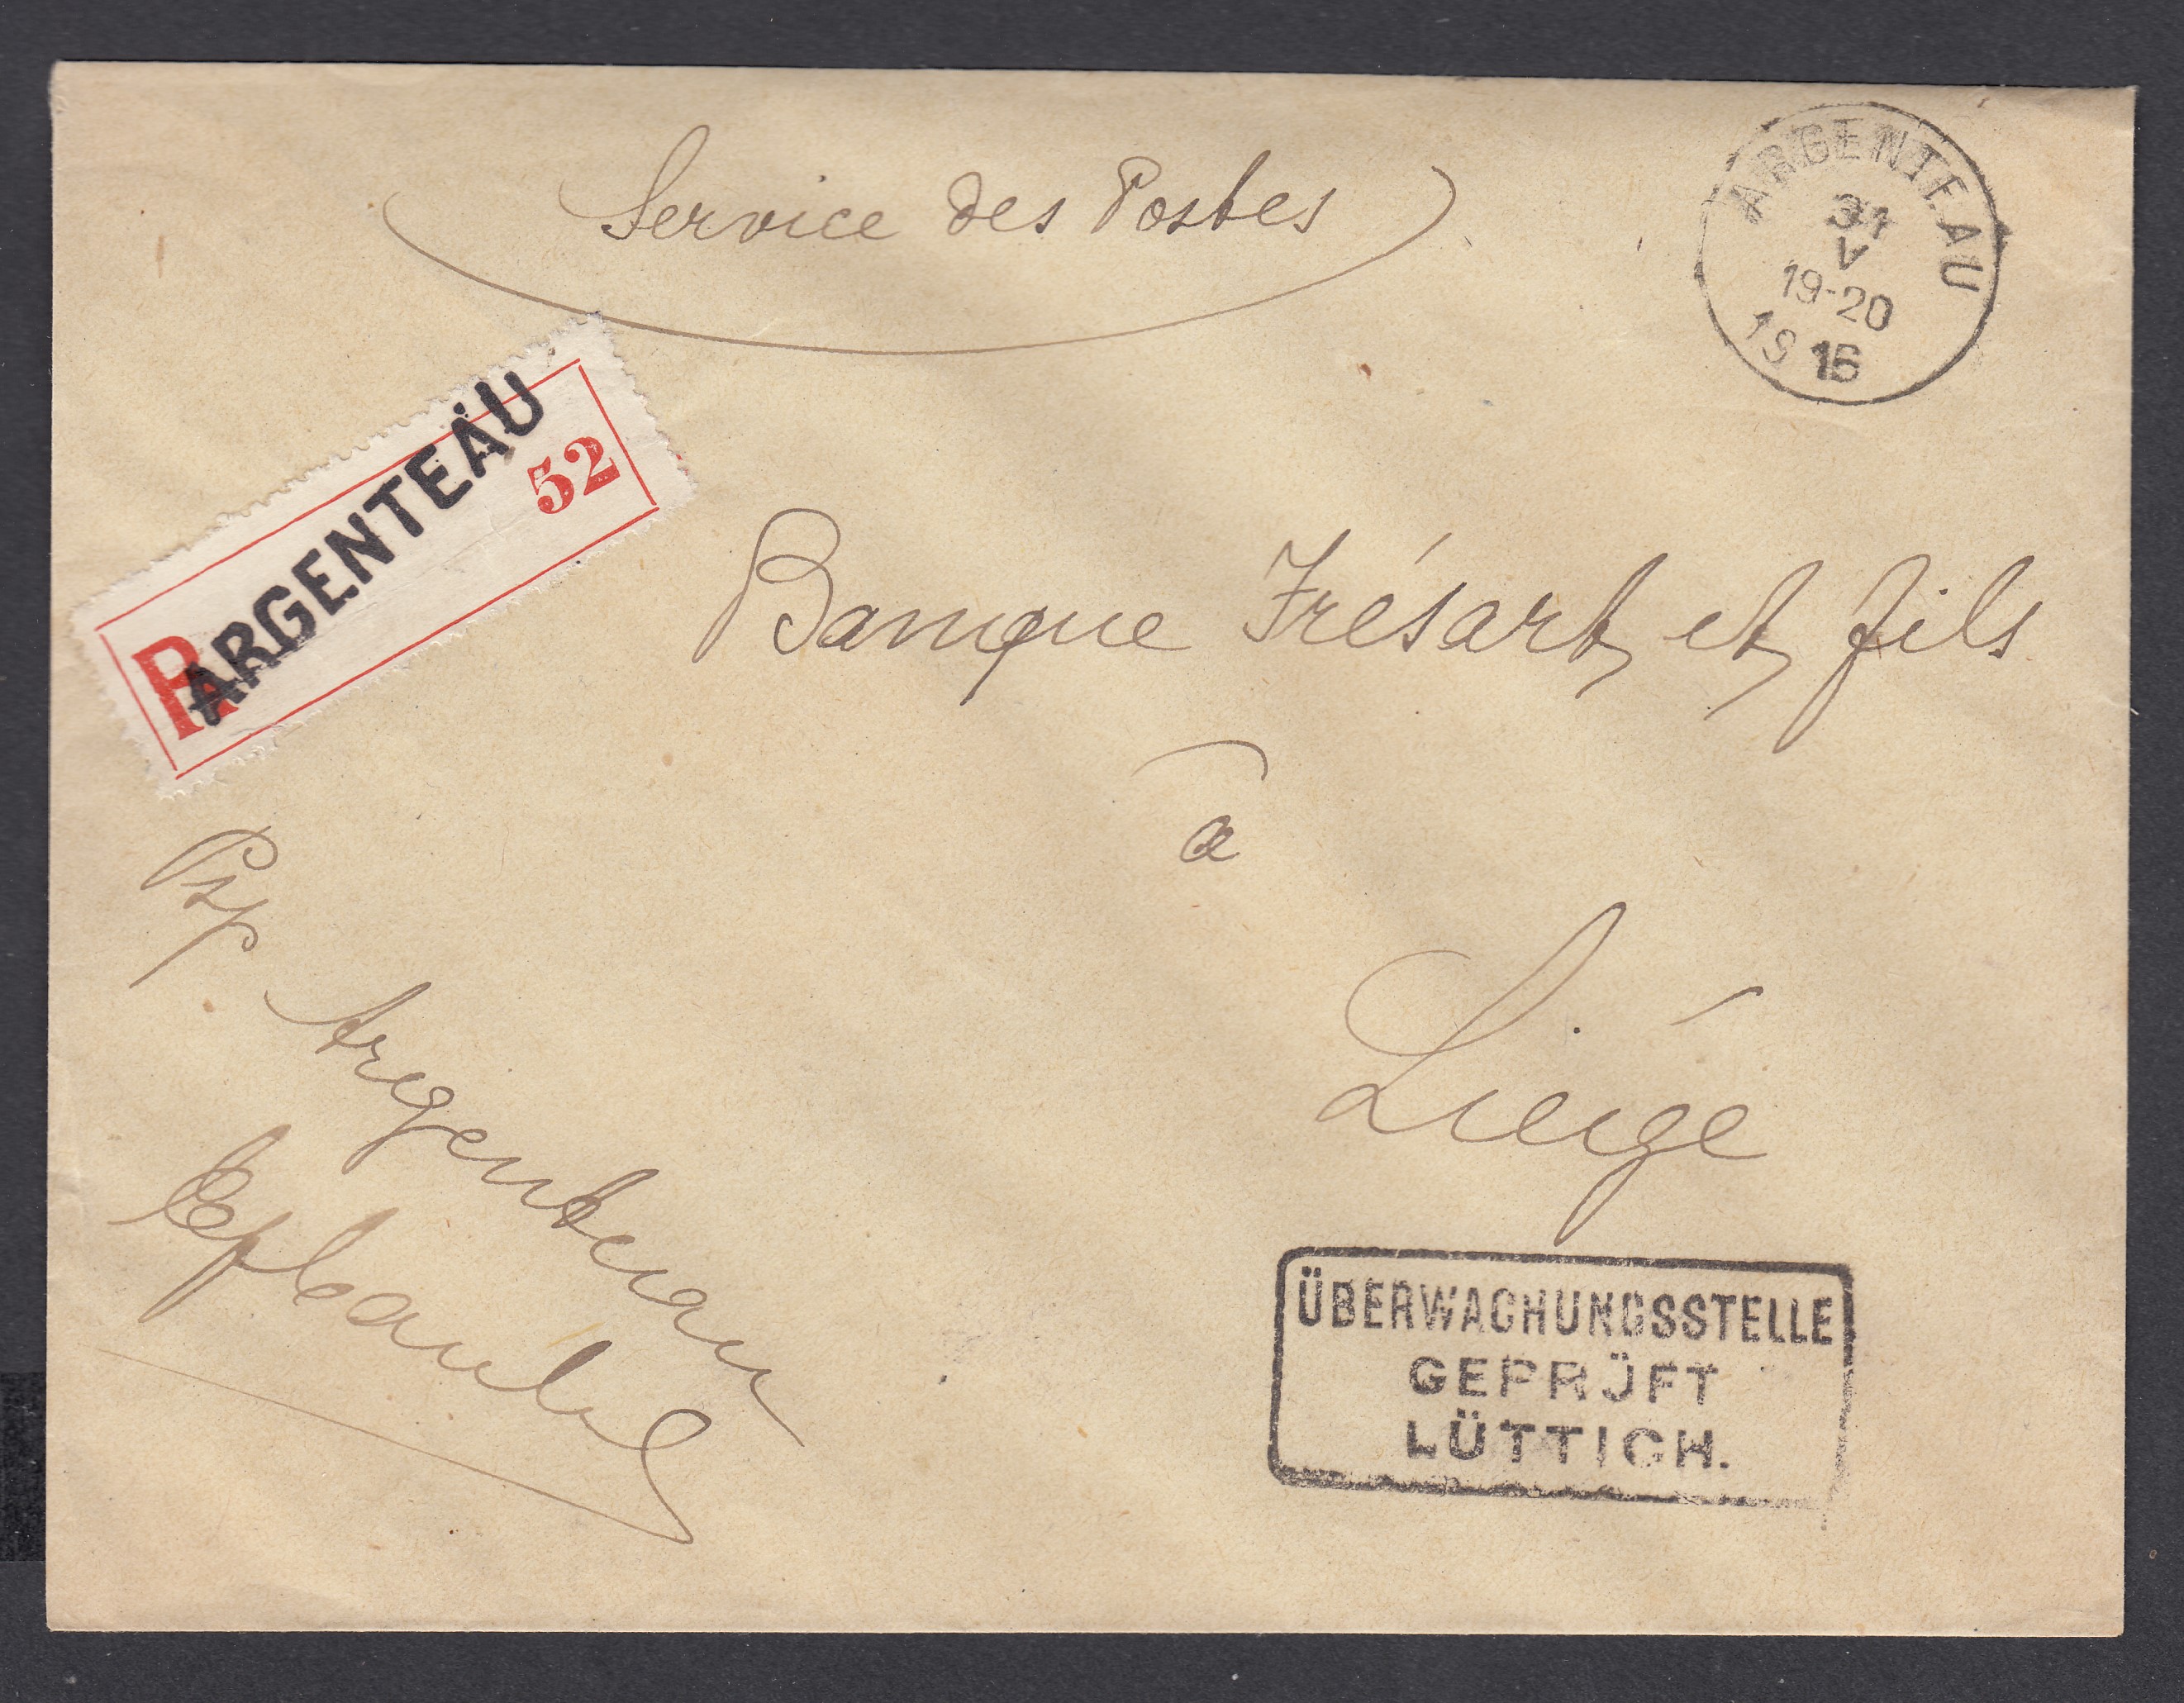 Service des Postes
ARGENTEAU
31
V
19-20
1916
ARGENTEAU
R
52
Banque Frésart et fils
à
Liége
Psp Argenteau
ÜBERWACHUNGSSTELLE
GEPRÜFT
LÜTTICH.